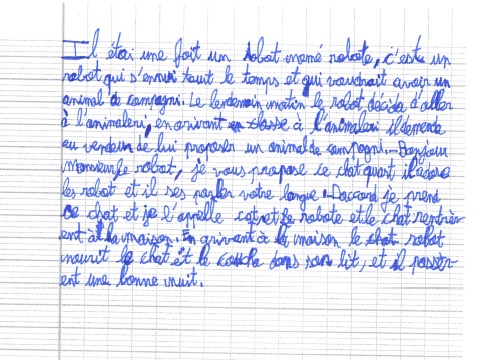 Il étai une foit un robot nomé robote, c'este un
robot qui s'ennui tout le temps et qui voudrait avoir un
animal de compagni. Le lendemain matin le robot decida d'aller
à l'animaleri, en arivant en classe à l'animaleri il demende
au vendeur de lui proposer un animal de compagni. - Bonjour
monsieur le robot, je vous propose ce chat quant il adore
les robot et il ses parler votre langue. - D'accord je prend
ce chat et je l'apelle robote et le chat rentrèr
ent à la maison. En arivant à la maison le chat robot
nourit le chat et le coucha dans son lit, et il passèr
ent une bonne nuit.